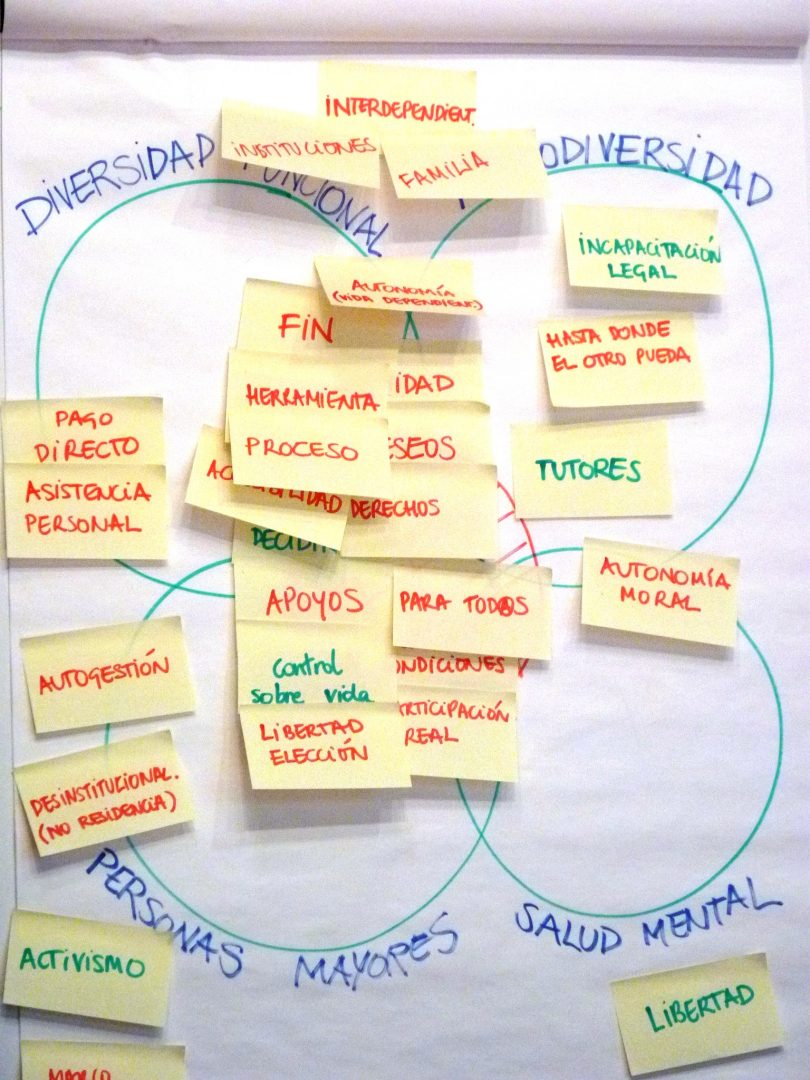 INTERDEPENDIENT.
INSTITUCIONES
FAMILIA
DIVERSIDAD FUNCIONAL
ODIVERSIDAD
INCAPACITACIÓN
LEGAL
AUTONOMÍA
(VIDA DEPENDIENT)
FIN
HASTA DONDE
EL OTRO PUEDA
IDAD
HERRAMIENTA
PROCESO
ESEOS
PAGO
DIRECTO
TUTORES
ASISTENCIA
PERSONAL
DERECHOS
APOYOS
PARA TOD@S
AUTONOMÍA
MORAL
AUTOGESTIÓN
CONTROL
SOBRE VIDA
ONDICIONES
LIBERTAD
ELECCIÓN
RTICIPACIÓN
REAL
DESINSTITUCIONAL.
(NO RESIDENCIA)
PERSONAS MAYORES
SALUD MENTAL
ACTIVISMO
LIBERTAD